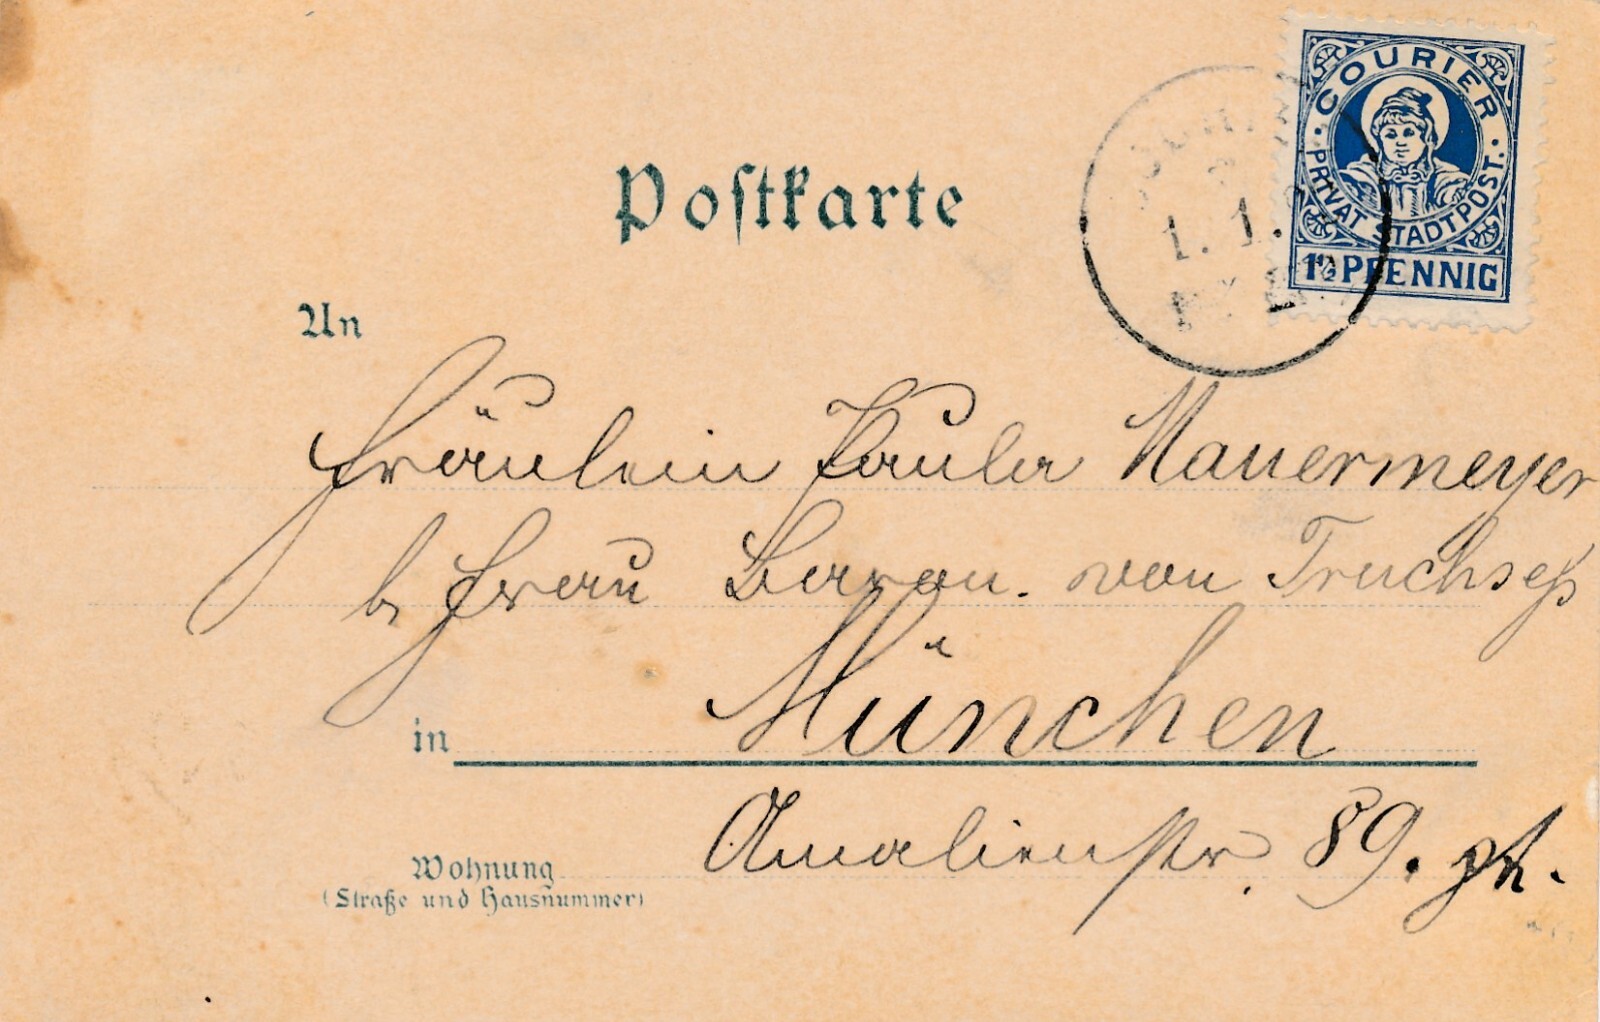 COURIER
PRIVAT STADTPOST.
1½ PFENNIG
1. 1.
Postkarte
An
Fräulein Paula Mauermeyer
b. Frau Baron. von Truchseß
in München
Amalienstr. 89. ph.
Wohnung
(Straße und Hausnummer)